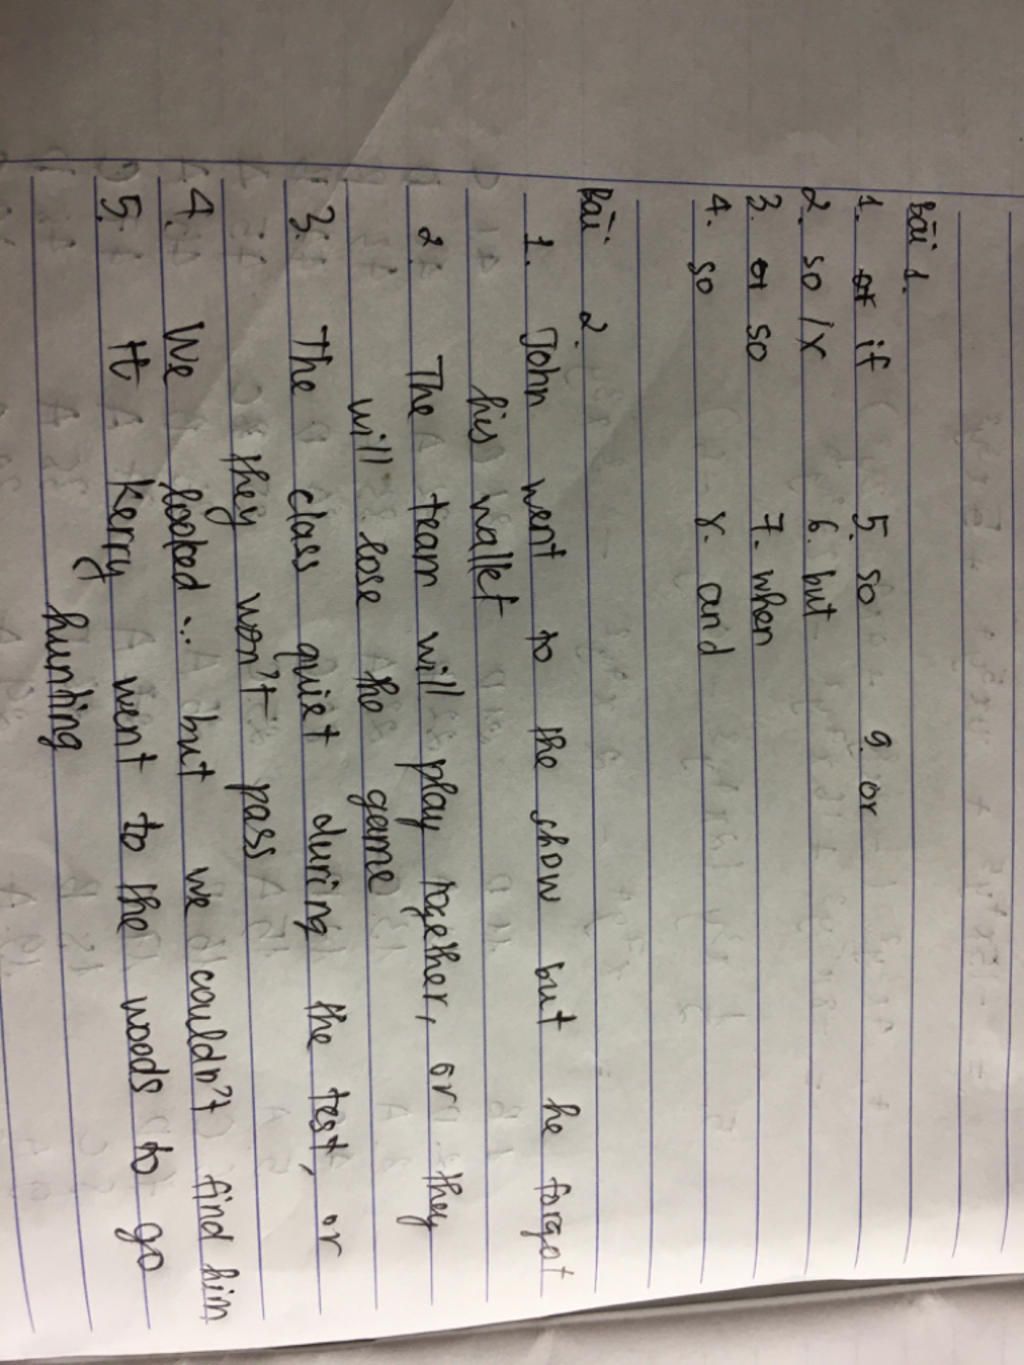 Bài 1.
1. if 5. so 9. or
2. so /x 6. but
3. so 7. when
4. so 8. and
Bài 2.
1. John went to the show but he forgot
his wallet
2. The team will play together, or they
will lose the game
3. The class quiet during the test, or
they won't pass
4. We looked... but we couldn't find him
5. It Kerry went to the woods to go
hunting